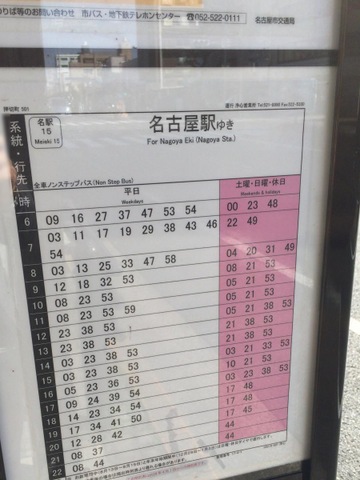 のりば等のお問い合わせ 市バス・地下鉄テレホンセンター ☎052-522-0111
名古屋市交通局
押切町
名駅
15
Meieki 15
名古屋駅ゆき
For Nagoya Eki (Nagoya Sta.)
系統・行先
全車ノンステップバス(Non Stop Bus)
時 平日 土曜・日曜・休日
Weekdays Weekends & holidays
6 09 16 27 37 47 53 54 00 23 48
7 03 11 17 19 29 38 43 46 22 49
54
8 03 13 25 33 47 58 04 20 31 49
9 12 18 32 53 08 21 53
10 08 23 53 05 21 53
11 08 23 53 59 05 21 38 53
12 23 38 53 05 21 38 53
13 23 38 53 21 38 53
14 03 23 38 53 21 38 53
15 03 23 38 53 03 21 33 53
16 05 23 36 53 10 21 53
17 09 24 39 54 03 23 38 53
18 14 23 34 54 17 48
19 17 34 41 50 17 48
20 12 28 42 17 45
21 08 37 44
22 08 44 44